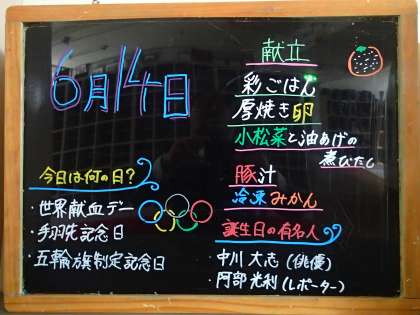 6月14日
献立
彩ごはん
厚焼き卵
小松菜と油あげの
煮びたし
豚汁
冷凍みかん
今日は何の日？
・世界献血デー
・手羽先記念日
・五輪旗制定記念日
誕生日の有名人
・中川 大志（俳優）
・阿部 光利（レポーター）